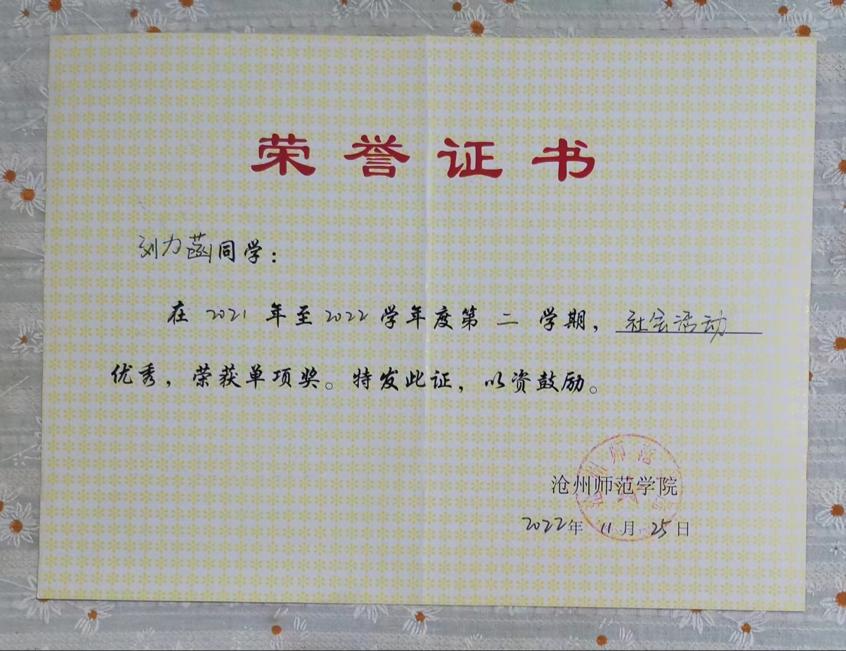 荣誉证书
刘力菡同学：
在 2021 年至 2022 学年度第 二 学期， 社会活动
优秀，荣获单项奖。特发此证，以资鼓励。
沧州师范学院
2022年 11 月 25 日